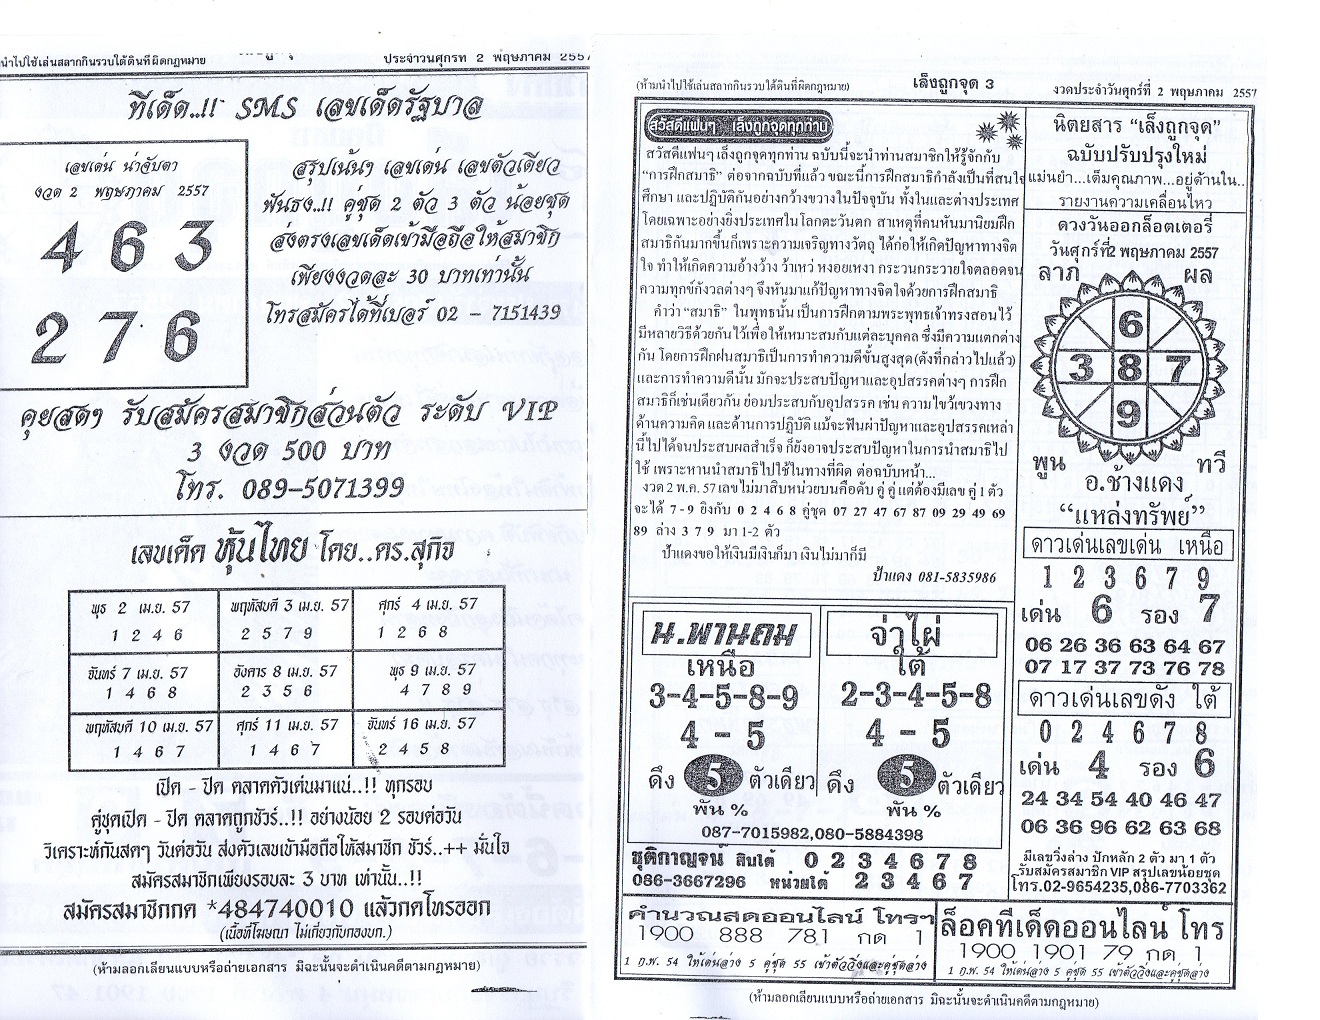 นำไปใช้เล่นสลากกินรวบใต้ดินที่ผิดกฎหมาย
ประจำวันศุกร์ที่ 2 พฤษภาคม 2557
ทีเด็ด..!! SMS เลขเด็ดรัฐบาล
เลขเด่น น่าจับตา
งวด 2 พฤษภาคม 2557
4 6 3
2 7 6
สรุปเน้นๆ เลขเด่น เลขตัวเดียว
ฟันธง..!! คู่ชุด 2 ตัว 3 ตัว น้อยชุด
ส่งตรงเลขเด็ดเข้ามือถือให้สมาชิก
เพียงงวดละ 30 บาทเท่านั้น
โทรสมัครได้ที่เบอร์ 02 - 7151439
คุยสดๆ รับสมัครสมาชิกส่วนตัว ระดับ VIP
3 งวด 500 บาท
โทร. 089-5071399
เลขเด็ด หุ้นไทย โดย..ดร.สุกิจ
พุธ 2 เม.ย. 57 พฤหัสบดี 3 เม.ย. 57 ศุกร์ 4 เม.ย. 57
1 2 4 6 2 5 7 9 1 2 6 8
จันทร์ 7 เม.ย. 57 อังคาร 8 เม.ย. 57 พุธ 9 เม.ย. 57
1 4 6 8 2 3 5 6 4 7 8 9
พฤหัสบดี 10 เม.ย. 57 ศุกร์ 11 เม.ย. 57 จันทร์ 16 เม.ย. 57
1 4 6 7 1 4 6 7 2 4 5 8
เปิด - ปิด ตลาดตัวเด่นมาแน่..!! ทุกรอบ
คู่ชุดเปิด - ปิด ตลาดถูกชัวร์..!! อย่างน้อย 2 รอบต่อวัน
วิเคราะห์กันสดๆ วันต่อวัน ส่งตัวเลขเข้ามือถือให้สมาชิก ชัวร์..++ มั่นใจ
สมัครสมาชิกเพียงรอบละ 3 บาท เท่านั้น..!!
สมัครสมาชิกกด *484740010 แล้วกดโทรออก
(เนื้อที่โฆษณา ไม่เกี่ยวกับกองบก.)
(ห้ามลอกเลียนแบบหรือถ่ายเอกสาร มิฉะนั้นจะดำเนินคดีตามกฎหมาย)
(ห้ามนำไปใช้เล่นสลากกินรวบใต้ดินที่ผิดกฎหมาย)
เล็งถูกจุด 3
งวดประจำวันศุกร์ที่ 2 พฤษภาคม 2557
สวัสดีแฟนๆ เล็งถูกจุดทุกท่าน
สวัสดีแฟนๆ เล็งถูกจุดทุกท่าน ฉบับนี้จะนำท่านสมาชิกให้รู้จักกับ
"การฝึกสมาธิ" ต่อจากฉบับที่แล้ว ขณะนี้การฝึกสมาธิกำลังเป็นที่สนใจ
ศึกษา และปฏิบัติกันอย่างกว้างขวางในปัจจุบัน ทั้งในและต่างประเทศ
โดยเฉพาะอย่างยิ่งประเทศในโลกตะวันตก สาเหตุที่คนหันมานิยมฝึก
สมาธิกันมากขึ้นก็เพราะความเจริญทางวัตถุ ได้ก่อให้เกิดปัญหาทางจิต
ใจ ทำให้เกิดความอ้างว้าง ว้าเหว่ หงอยเหงา กระวนกระวายใจตลอดจน
ความทุกข์กังวลต่างๆ จึงหันมาแก้ปัญหาทางจิตใจด้วยการฝึกสมาธิ
คำว่า "สมาธิ" ในพุทธนั้น เป็นการฝึกตามพระพุทธเจ้าทรงสอนไว้
มีหลายวิธีด้วยกัน ไว้เพื่อให้เหมาะสมกับแต่ละบุคคล ซึ่งมีความแตกต่าง
กัน โดยการฝึกฝนสมาธิเป็นการทำความดีขั้นสูงสุด(ดังที่กล่าวไปแล้ว)
และการทำความดีนั้น มักจะประสบปัญหาและอุปสรรคต่างๆ การฝึก
สมาธิก็เช่นเดียวกัน ย่อมประสบกับอุปสรรค เช่น ความไขว้เขวทาง
ด้านความคิด และด้านการปฏิบัติ แม้จะฟันฝ่าปัญหาและอุปสรรคเหล่า
นี้ไปได้จนประสบผลสำเร็จ ก็ยังอาจประสบปัญหาในการนำสมาธิไป
ใช้ เพราะหานนำสมาธิไปใช้ในทางที่ผิด ต่อฉบับหน้า...
งวด 2 พ.ค. 57 เลข ไม่มาสิบหน่วยบนคือดับ คู่ คู่ แต่ต้องมีเลข คู่ 1 ตัว
จะได้ 7 - 9 ยิงกับ 0 2 4 6 8 คู่ชุด 07 27 47 67 87 09 29 49 69
89 ล่าง 3 7 9 มา 1-2 ตัว
ป้าแดงขอให้เงินมีเงินก็มา เงินไม่มาก็มี
ป้าแดง 081-5835986
น.พานถม
เหนือ
3-4-5-8-9
4 - 5
ดึง 5 ตัวเดียว
พัน %
จ่าไผ่
ใต้
2-3-4-5-8
4 - 5
ดึง 5 ตัวเดียว
พัน %
087-7015982,080-5884398
ชุติกาญจน์ สิบใต้ 0 2 3 4 6 7 8
086-3667296 หน่วยใต้ 2 3 4 6 7
คำนวณสดออนไลน์ โทรฯ
1900 888 781 กด 1
1 ก.พ. 54 ให้เด่นล่าง 5 คู่ชุด 55 เข้าตัววิ่งและคู่ชุดล่าง
นิตยสาร "เล็งถูกจุด"
ฉบับปรับปรุงใหม่
แม่นยำ...เต็มคุณภาพ...อยู่ด้านใน..
รายงานความเคลื่อนไหว
ดวงวันออกล็อตเตอรี่
วันศุกร์ที่2 พฤษภาคม 2557
ลาภ ผล
6
3 8 7
9
พูน ทวี
อ.ช้างแดง
"แหล่งทรัพย์"
ดาวเด่นเลขเด่น เหนือ
1 2 3 6 7 9
เด่น 6 รอง 7
06 26 36 63 64 67
07 17 37 73 76 78
ดาวเด่นเลขดัง ใต้
0 2 4 6 7 8
เด่น 4 รอง 6
24 34 54 40 46 47
06 36 96 62 63 68
มีเลขวิ่งล่าง ปักหลัก 2 ตัว มา 1 ตัว
รับสมัครสมาชิก VIP สรุปเลขน้อยชุด
โทร.02-9654235,086-7703362
ล็อคทีเด็ดออนไลน์ โทร
1900 1901 79 กด 1
1 ก.พ. 54 ให้เด่นล่าง 5 คู่ชุด 55 เข้าตัววิ่งและคู่ชุดล่าง
(ห้ามลอกเลียนแบบหรือถ่ายเอกสาร มิฉะนั้นจะดำเนินคดีตามกฎหมาย)